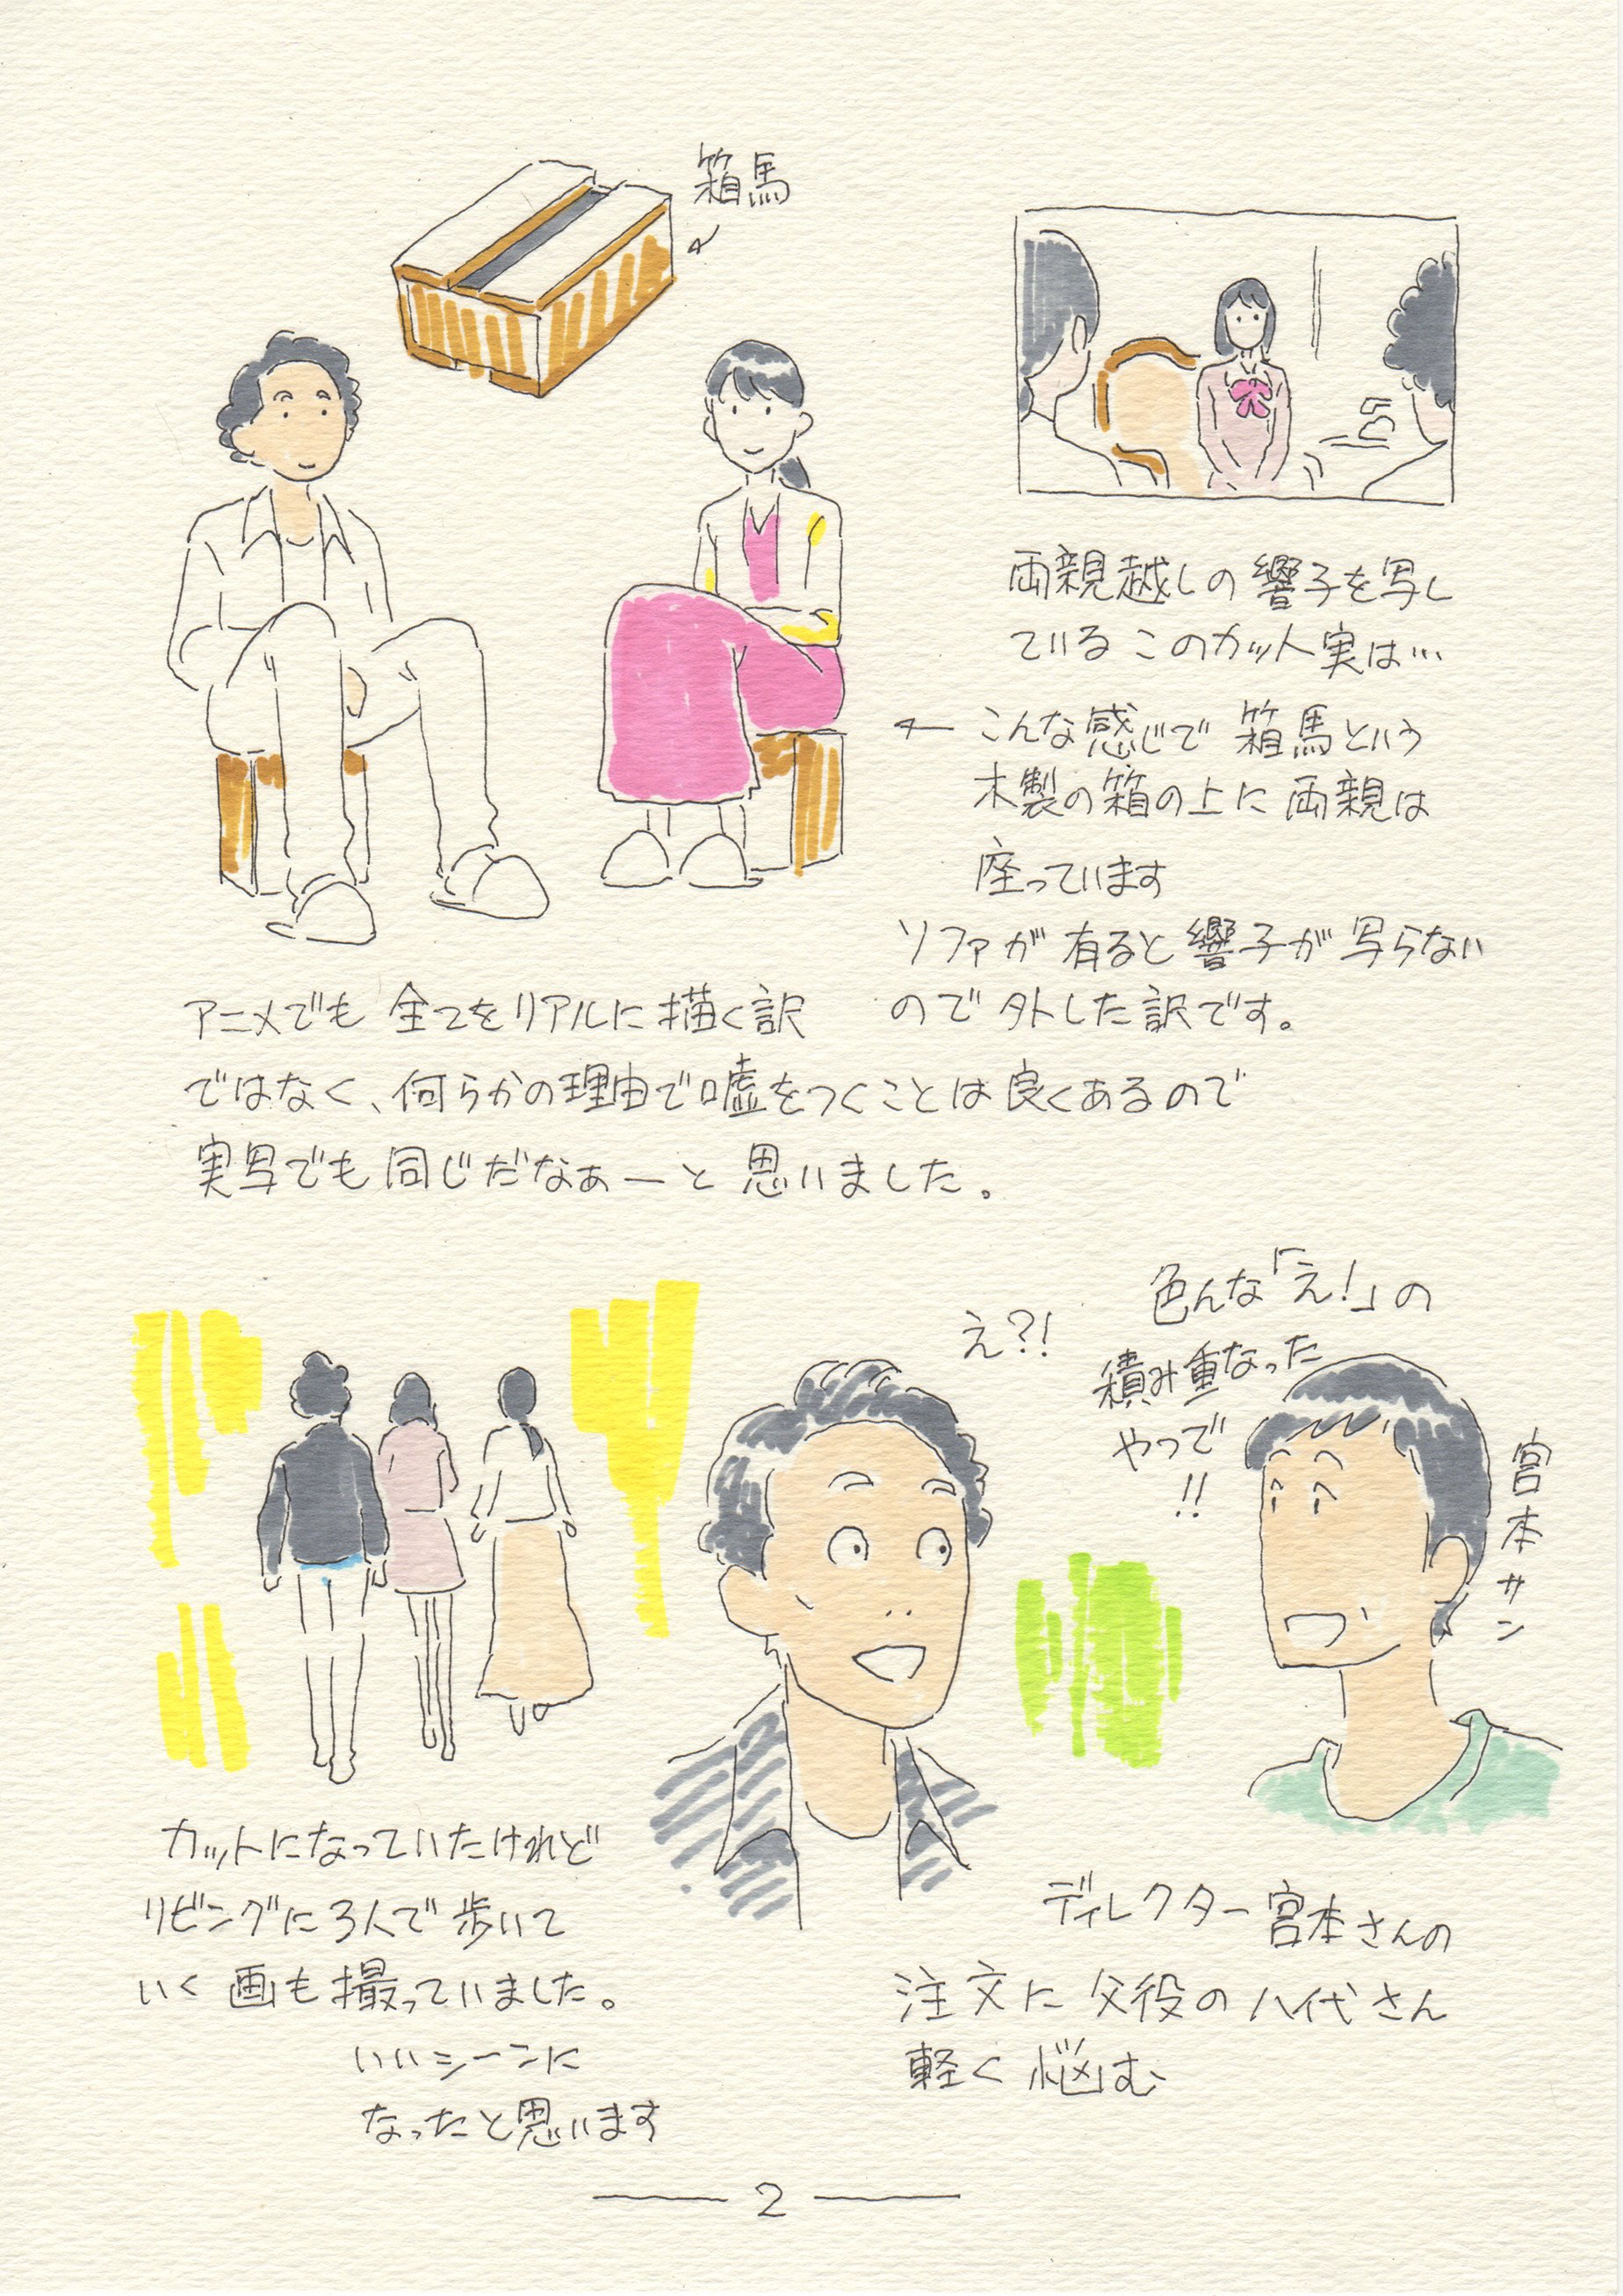 箱馬
両親越しの響子を写し
ているこのカット実は…
こんな感じで箱馬という
木製の箱の上に両親は
座っています
ソファが有ると響子が写らない
ので外した訳です。
アニメでも全てをリアルに描く訳
ではなく、何らかの理由で嘘をつくことは良くあるので
実写でも同じだなぁーと思いました。
え?!
色んな「え!」の
積み重なった
やつで
!!
宮本サン
カットになっていたけれど
リビングに3人で歩いて
いく画も撮っていました。
いいシーンに
なったと思います
ディレクター宮本さんの
注文に父役の八代さん
軽く悩む
2